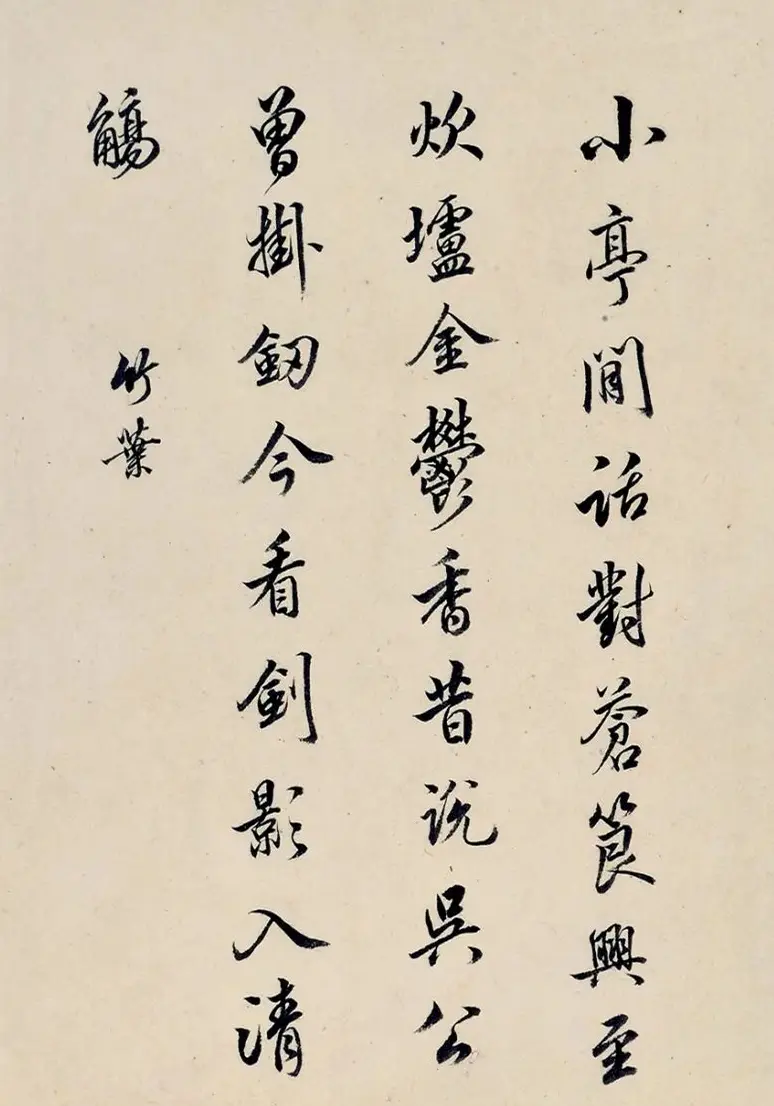 小亭閒話對蒼筤興至
炊壚金鬱香昔說吳公
曾掛劒今看劍影入清
觴
竹葉